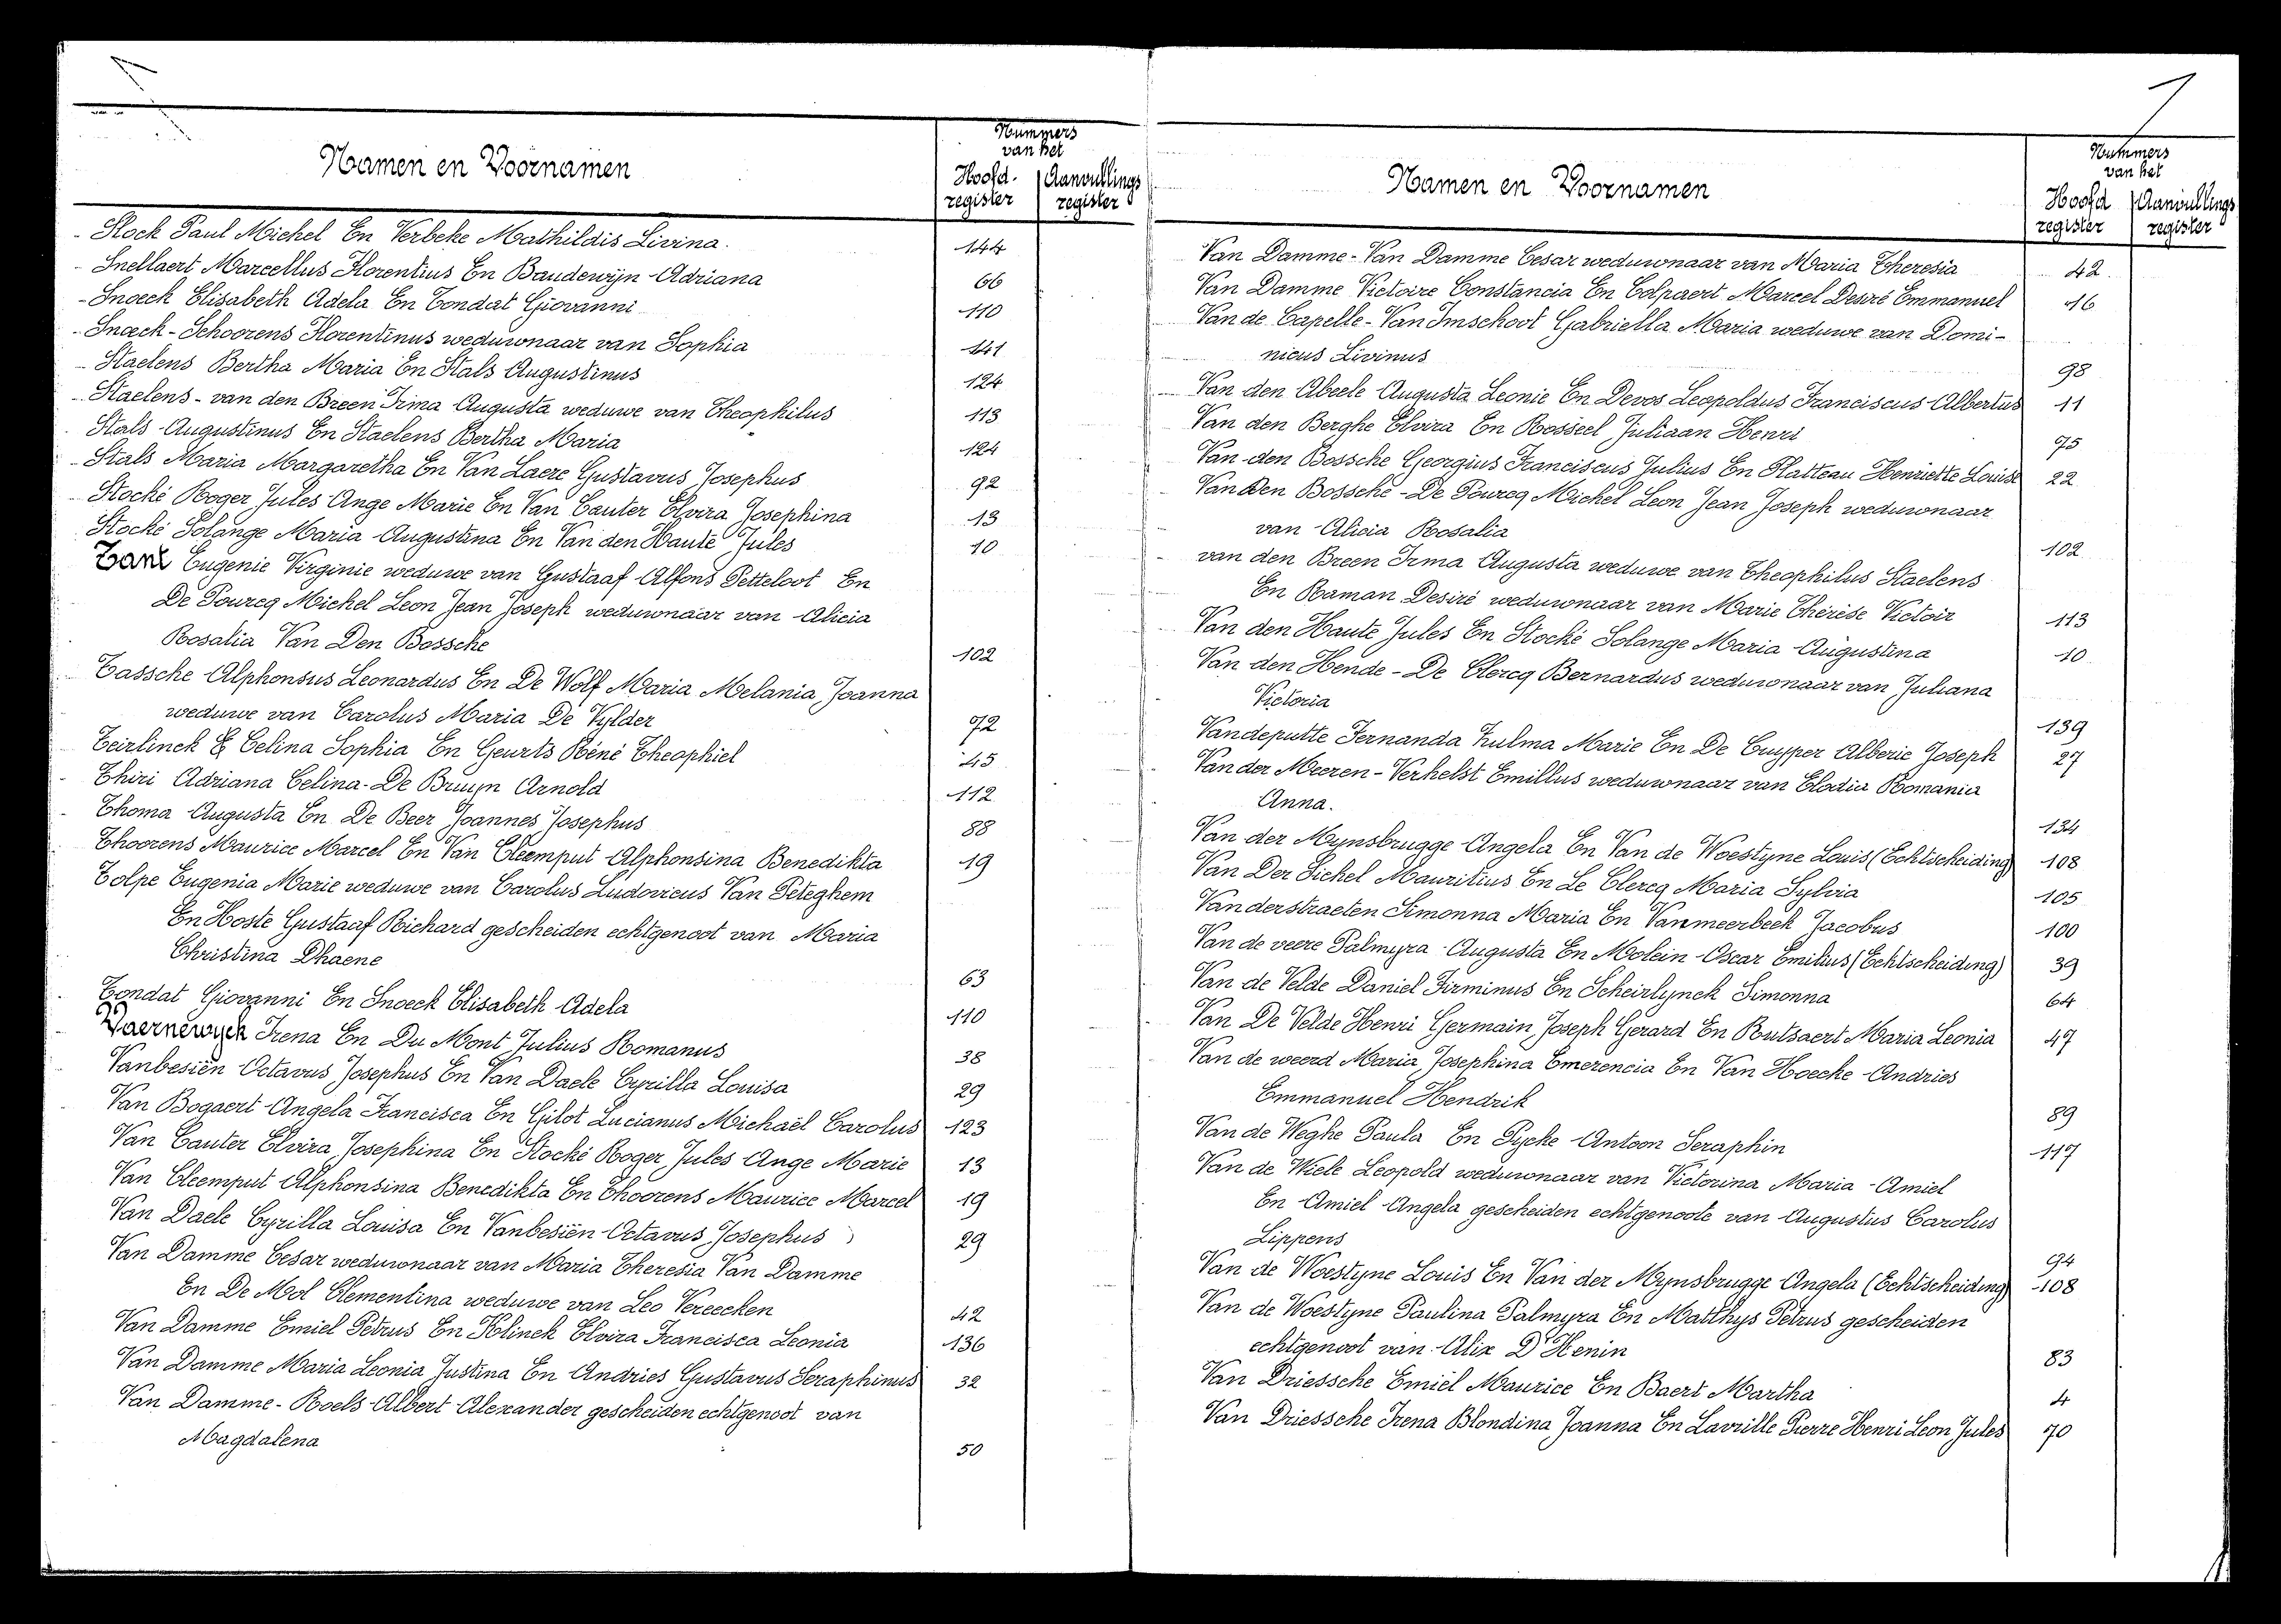 Namen en Voornamen
Nummers
van het
Hoofd-
register
Aanvullings
register
Stock Paul Michel En Verbeke Mathildis Livina. 144
Snellaert Marcellus Florentius En Baudewijn Adriana 66
Snoeck Elisabeth Adela En Tondat Giovanni 110
Snoeck-Schoorens Florentinus weduwnaar van Sophia 141
Staelens Bertha Maria En Stals Augustinus 124
Staelens - van den Breen Irma Augusta weduwe van Theophilus 113
Stals Augustinus En Staelens Bertha Maria 124
Stals Maria Margaretha En Van Laere Gustavus Josephus 92
Stocké Roger Jules Ange Marie En Van Cauter Elvira Josephina 13
Stocké Solange Maria Augustina En Van den Haute Jules 10
Tant Eugenie Virginie weduwe van Gustaaf Alfons Petteloot En
De Pourcq Michel Leon Jean Joseph weduwnaar van Alicia
Rosalia Van Den Bossche 102
Tassche Alphonsus Leonardus En De Wolf Maria Melania Joanna
weduwe van Carolus Maria De Vylder 72
Teirlinck Celina Sophia En Geurts Réné Theophiel 45
Thiri Adriana Celina - De Bruyn Arnold 112
Thoma Augusta En De Beer Joannes Josephus 88
Thoorens Maurice Marcel En Van Cleemput Alphonsina Benedikta 19
Tolpe Eugenia Marie weduwe van Carolus Ludovicus Van Peteghem
En Hoste Gustaaf Richard gescheiden echtgenoot van Maria
Christina Dhaene 63
Tondat Giovanni En Snoeck Elisabeth Adela 110
Vaernewyck Irena En Du Mont Julius Romanus 38
Vanbesiën Octavus Josephus En Van Daele Cyrilla Louisa 29
Van Bogaert Angela Francisca En Gilot Lucianus Michaël Carolus 123
Van Cauter Elvira Josephina En Stocké Roger Jules Ange Marie 13
Van Cleemput Alphonsina Benedikta En Thoorens Maurice Marcel 19
Van Daele Cyrilla Louisa En Vanbesiën Octavus Josephus 29
Van Damme Cesar weduwnaar van Maria Theresia Van Damme
En De Mol Clementina weduwe van Leo Vereecken 42
Van Damme Emiel Petrus En Klinck Elvira Francisca Leonia 136
Van Damme Maria Leonia Justina En Andries Gustavus Seraphinus 32
Van Damme - Roels Albert Alexander gescheiden echtgenoot van
Magdalena 50
Namen en Voornamen
Nummers
van het
Hoofd
register
Aanvullings
register
Van Damme - Van Damme Cesar weduwnaar van Maria Theresia 42
Van Damme Victoire Constancia En Colpaert Marcel Desiré Emmanuel 16
Van de Capelle - Van Imschoot Gabriella Maria weduwe van Domi-
nicus Livinus 98
Van den Abeele Augusta Leonie En Devos Leopoldus Franciscus Albertus 11
Van den Berghe Elvira En Rosseel Juliaan Henri 75
Van den Bossche Georgius Franciscus Julius En Platteau Henriette Louise 22
Van Den Bossche - De Pourcq Michel Leon Jean Joseph weduwnaar
van Alicia Rosalia 102
van den Breen Irma Augusta weduwe van Theophilus Staelens
En Raman Desiré weduwnaar van Marie Thérèse Victoir 113
Van den Haute Jules En Stocké Solange Maria Augustina 10
Van den Hende - De Clercq Bernardus weduwnaar van Juliana
Victoria 139
Vandeputte Fernanda Zulma Marie En De Cuyper Alberic Joseph 27
Van der Meeren - Verhelst Emillus weduwnaar van Elodia Romania
Anna. 134
Van der Mynsbrugge Angela En Van de Woestyne Louis (Echtscheiding) 108
Van Der Sichel Mauritius En Le Clercq Maria Sylvia 105
Vanderstraeten Simonna Maria En Vanmeerbeek Jacobus 100
Van de veere Palmyra Augusta En Molein Oscar Emilius (Echtscheiding) 39
Van de Velde Daniel Firminus En Scheirlynck Simonna 64
Van De Velde Henri Germain Joseph Gerard En Rutsaert Maria Leonia 47
Van de weerd Maria Josephina Emerencia En Van Hoecke Andries
Emmanuel Hendrik 89
Van de Weghe Paula En Pycke Antoon Seraphin 117
Van de Wiele Leopold weduwnaar van Victorina Maria Amiel
En Amiel Angela gescheiden echtgenoote van Augustus Carolus
Lippens 94
Van de Woestyne Louis En Van der Mynsbrugge Angela (Echtscheiding) 108
Van de Woestyne Paulina Palmyra En Matthys Petrus gescheiden
echtgenoot van Alix D'Henin 83
Van Driessche Emiel Maurice En Baert Martha 4
Van Driessche Irena Blondina Joanna En Lavrille Pierre Henri Leon Jules 70